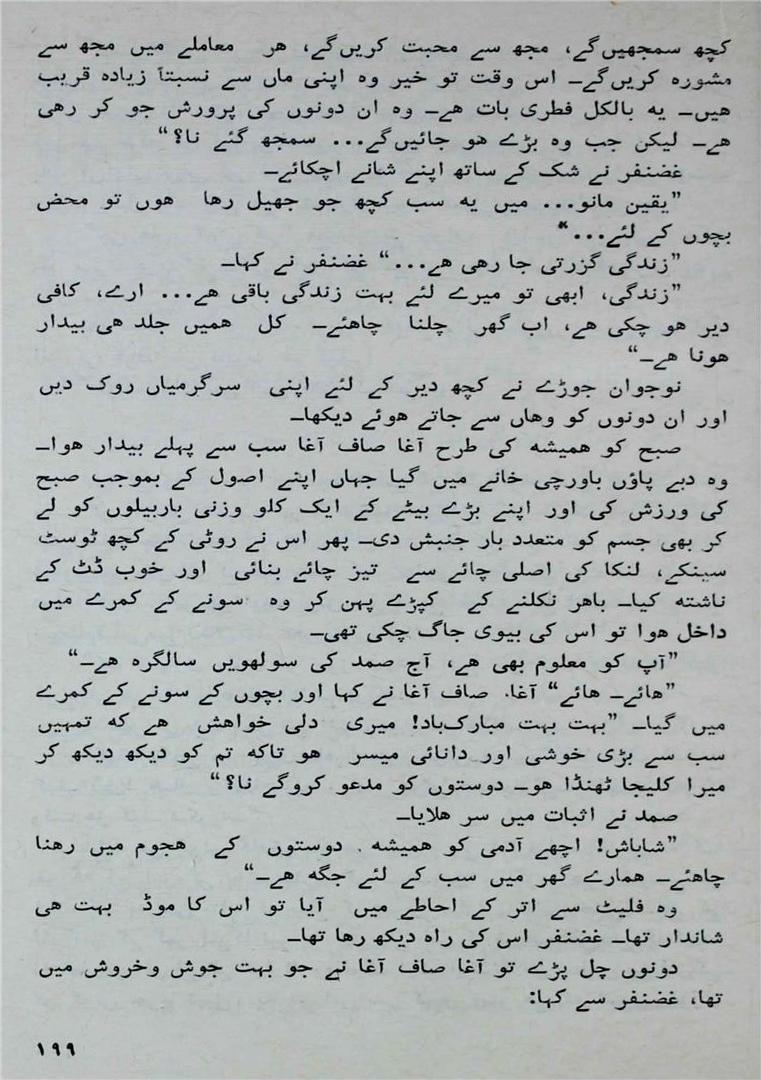 کچھ سمجھیں گے، مجھ سے محبت کریں گے، هر معاملے میں مجھ سے
مشورہ کریں گے۔ اس وقت تو خیر وہ اپنی ماں سے نسبتاً زیادہ قریب
هیں۔ یه بالکل فطری بات هے۔ وہ ان دونوں کی پرورش جو کر رهی
هے۔ لیکن جب وہ بڑے هو جائیں گے... سمجھ گئے نا؟“
غضنفر نے شک کے ساتھ اپنے شانے اچکائے۔
”یقین مانو... میں یه سب کچھ جو جھیل رها هوں تو محض
بچوں کے لئے...“
”زندگی گزرتی جا رهی هے...“ غضنفر نے کہا۔
”زندگی، ابھی تو میرے لئے بہت زندگی باقی هے... ارے، کافی
دیر هو چکی هے، اب گھر چلنا چاهئے۔ کل همیں جلد هی بیدار
هونا هے۔“
نوجوان جوڑے نے کچھ دیر کے لئے اپنی سرگرمیاں روک دیں
اور ان دونوں کو وهاں سے جاتے هوئے دیکھا۔
صبح کو همیشه کی طرح آغا صاف آغا سب سے پہلے بیدار هوا۔
وہ دبے پاؤں باورچی خانے میں گیا جہاں اپنے اصول کے بموجب صبح
کی ورزش کی اور اپنے بڑے بیٹے کے ایک کلو وزنی باربیلوں کو لے
کر بھی جسم کو متعدد بار جنبش دی۔ پھر اس نے روٹی کے کچھ ٹوسٹ
سینکے، لنکا کی اصلی چائے سے تیز چائے بنائی اور خوب ڈٹ کے
ناشته کیا۔ باهر نکلنے کے کپڑے پہن کر وہ سونے کے کمرے میں
داخل هوا تو اس کی بیوی جاگ چکی تھی۔
”آپ کو معلوم بھی هے، آج صمد کی سولھویں سالگرہ هے۔“
”هائے۔ هائے“ آغا صاف آغا نے کہا اور بچوں کے سونے کے کمرے
میں گیا۔ ”بہت بہت مبارک باد! میری دلی خواهش هے که تمہیں
سب سے بڑی خوشی اور دانائی میسر هو تاکه تم کو دیکھ دیکھ کر
میرا کلیجا ٹھنڈا هو۔ دوستوں کو مدعو کروگے نا؟“
صمد نے اثبات میں سر هلایا۔
”شاباش! اچھے آدمی کو همیشه دوستوں کے هجوم میں رهنا
چاهئے۔ همارے گھر میں سب کے لئے جگه هے۔“
وہ فلیٹ سے اتر کے احاطے میں آیا تو اس کا موڈ بہت هی
شاندار تھا۔ غضنفر اس کی راہ دیکھ رها تھا۔
دونوں چل پڑے تو آغا صاف آغا نے جو بہت جوش وخروش میں
تھا، غضنفر سے کہا:
۱۹۹